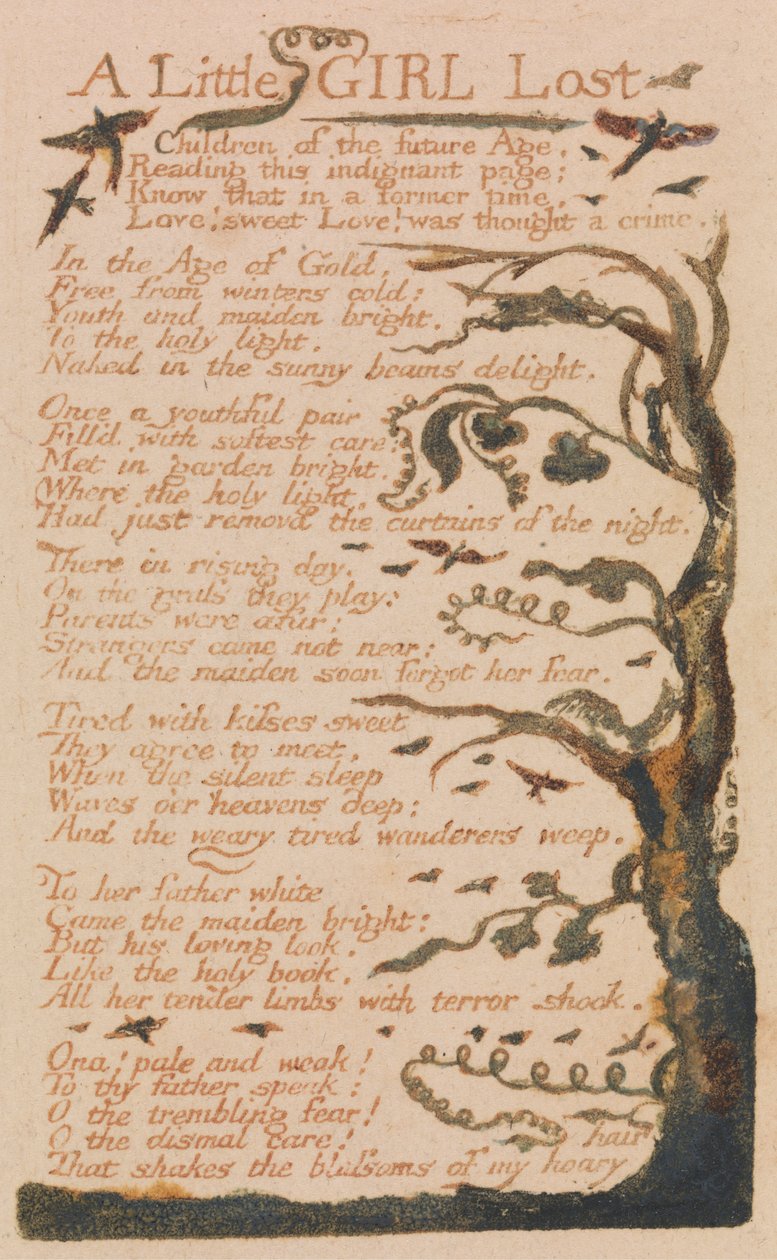 A Little GIRL Lost
Children of the future Age,
Reading this indignant page;
Know that in a former time,
Love! sweet Love! was thought a crime.
In the Age of Gold,
Free from winters cold:
Youth and maiden bright,
To the holy light,
Naked in the sunny beams delight.
Once a youthful pair
Fill'd with softest care:
Met in garden bright,
Where the holy light,
Had just removd the curtains of the night.
There in rising day,
On the grass they play:
Parents were afar:
Strangers came not near:
And the maiden soon forgot her fear.
Tired with kisses sweet
They agree to meet,
When the silent sleep
Waves o'er heavens deep:
And the weary tired wanderers weep.
To her father white
Came the maiden bright:
But his loving look,
Like the holy book,
All her tender limbs with terror shook.
Ona! pale and weak!
To thy father speak:
O the trembling fear!
O the dismal care!
That shakes the blossoms of my hoary hair